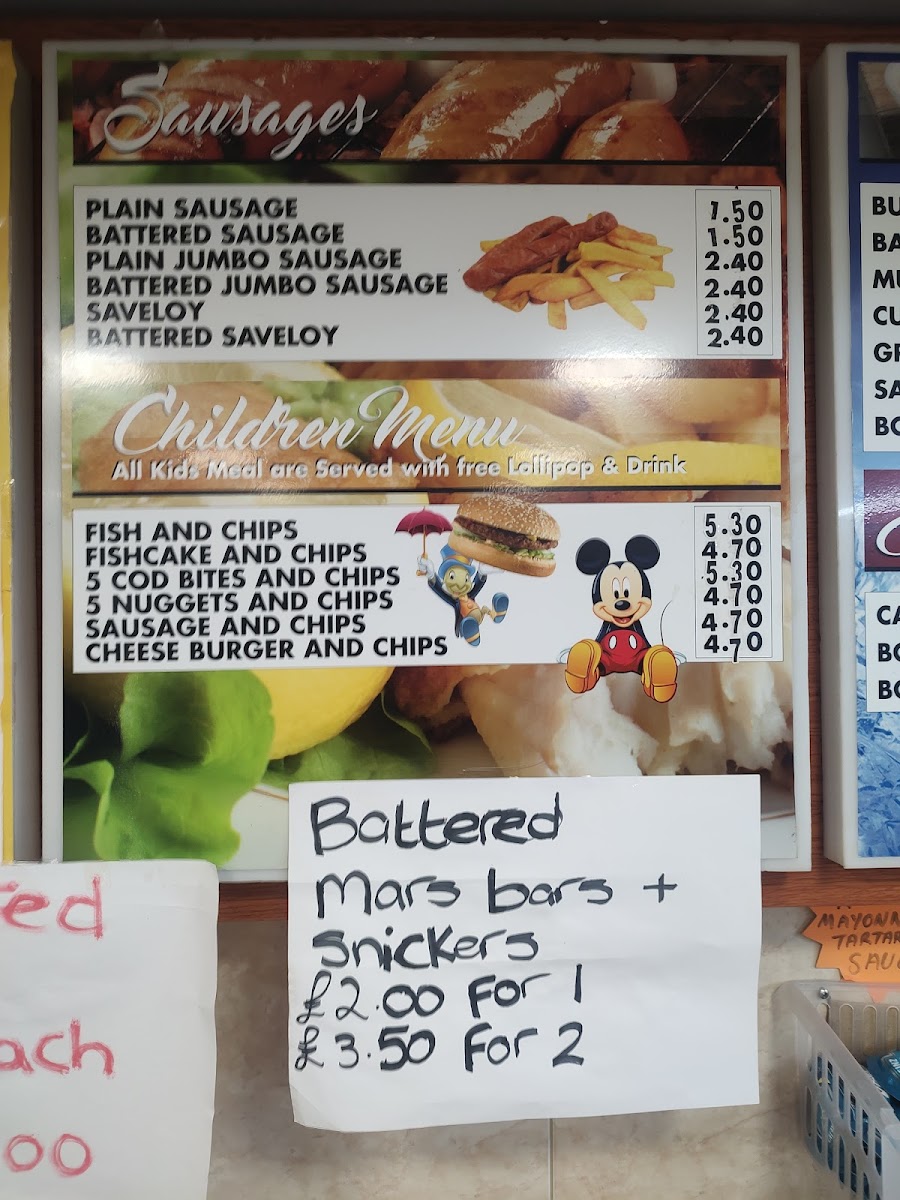 Sausages
PLAIN SAUSAGE 1.50
BATTERED SAUSAGE 1.50
PLAIN JUMBO SAUSAGE 2.40
BATTERED JUMBO SAUSAGE 2.40
SAVELOY 2.40
BATTERED SAVELOY 2.40
Children Menu
All Kids Meal are Served with free Lollipop & Drink
FISH AND CHIPS 5.30
FISHCAKE AND CHIPS 4.70
5 COD BITES AND CHIPS 5.30
5 NUGGETS AND CHIPS 4.70
SAUSAGE AND CHIPS 4.70
CHEESE BURGER AND CHIPS 4.70
Battered
Mars bars +
Snickers
£2.00 For 1
£3.50 For 2
ed
ach
00
BU
BA
MU
CU
GR
SA
BO
CA
BO
BO
MAYONN
TARTAR
SAU